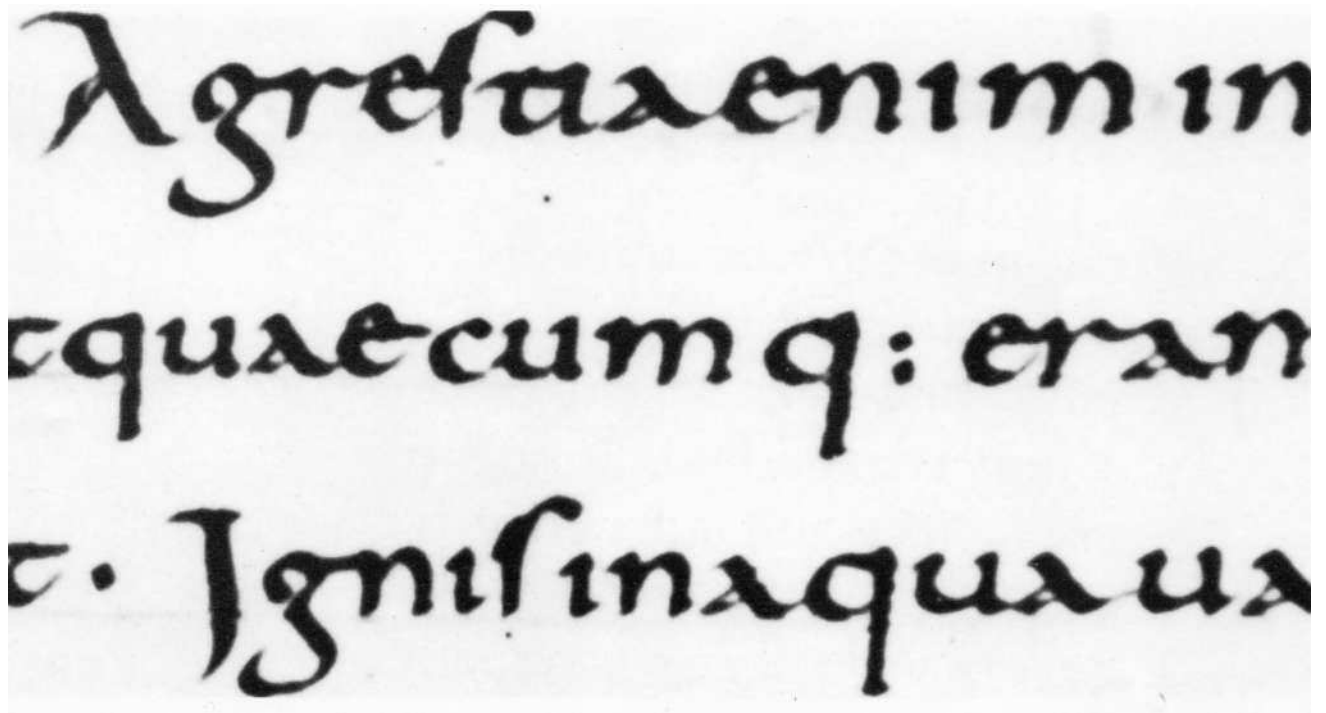 Agreſtia enim in
t quaecumq: eran
t · Igniſ in aqua ua